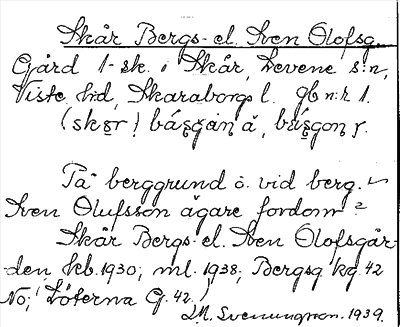 Skår Bergs- el. Sven Olofsg.
Gård 1-sk. i Skår, Levene s:n,
Viste h:d, Skaraborgs l. gb n:r 1.
(skɐr)
På berggrund o. vid berg.
Sven Olufsson ägare fordom?
Skår Bergs- el. Sven Olofsgår-
den, kb. 1930; ml. 1938; Bergsg kg. 42
No; Löterna G. 42.
L.M. Svenungsson. 1939.